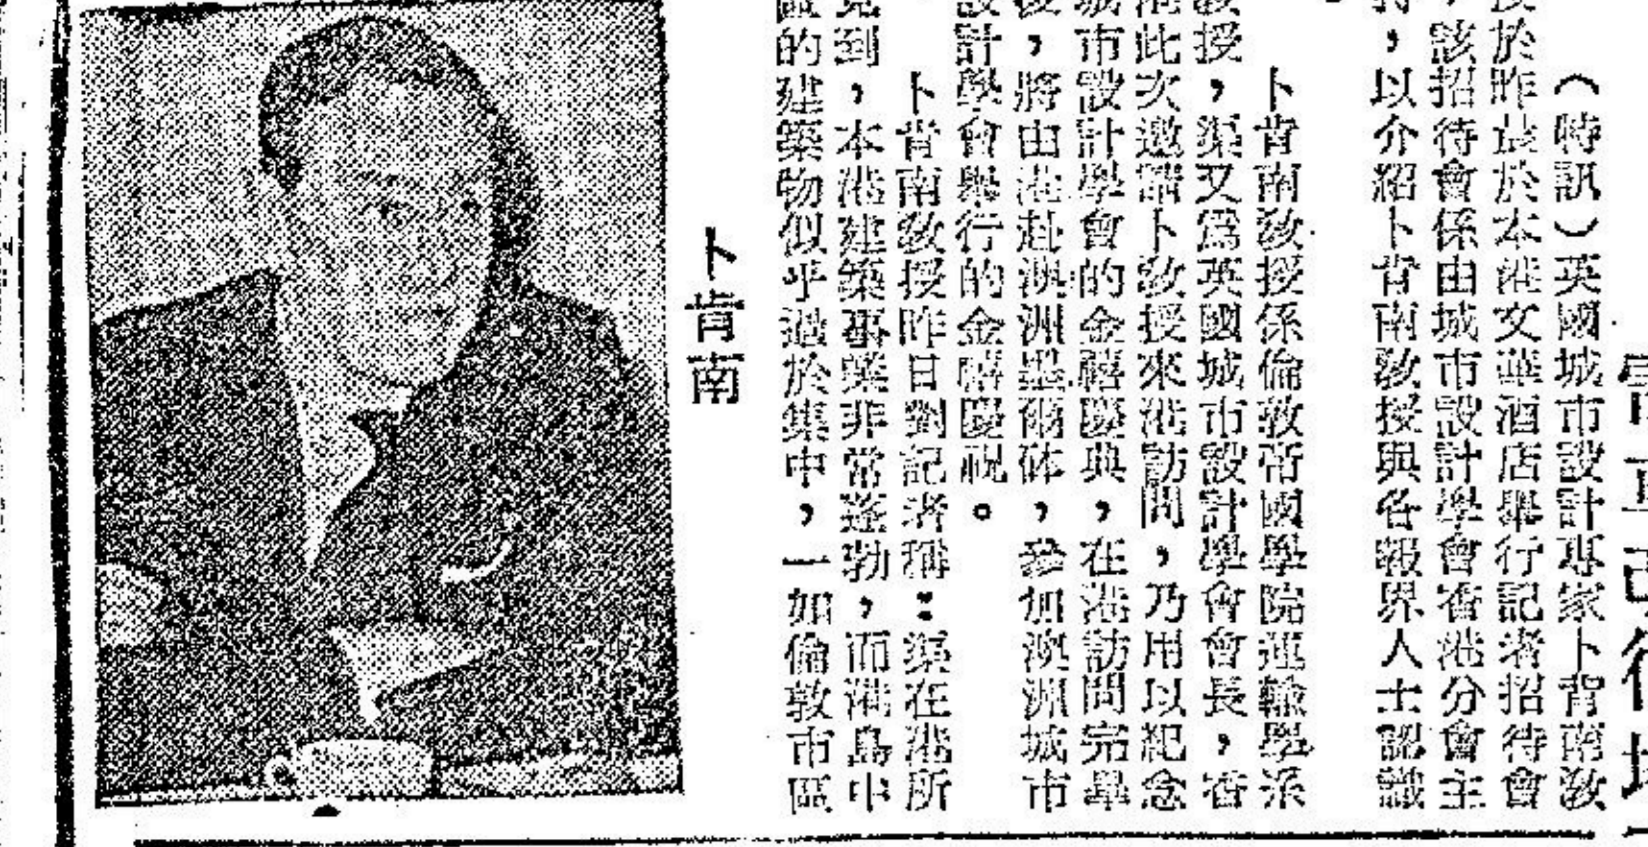 （時訊）英國城市設計專家卜肯南教
授於昨晨於本港文華酒店舉行記者招待會
，該招待會係由城市設計學會香港分會主
持，以介紹卜肯南教授與各報界人士認識
。
卜肯南教授係倫敦帝國學院運輸學系
教授，渠又爲英國城市設計學會會長，香
港此次邀請卜教授來港訪問，乃用以紀念
城市設計學會的金禧慶典，在港訪問完畢
後，將由港赴澳洲墨爾砵，參加澳洲城市
設計學會舉行的金禧慶祝。
卜肯南教授昨日對記者稱：渠在港所
見到，本港建築事業非常蓬勃，而港島中
區的建築物似乎過於集中，一如倫敦市區
卜肯南